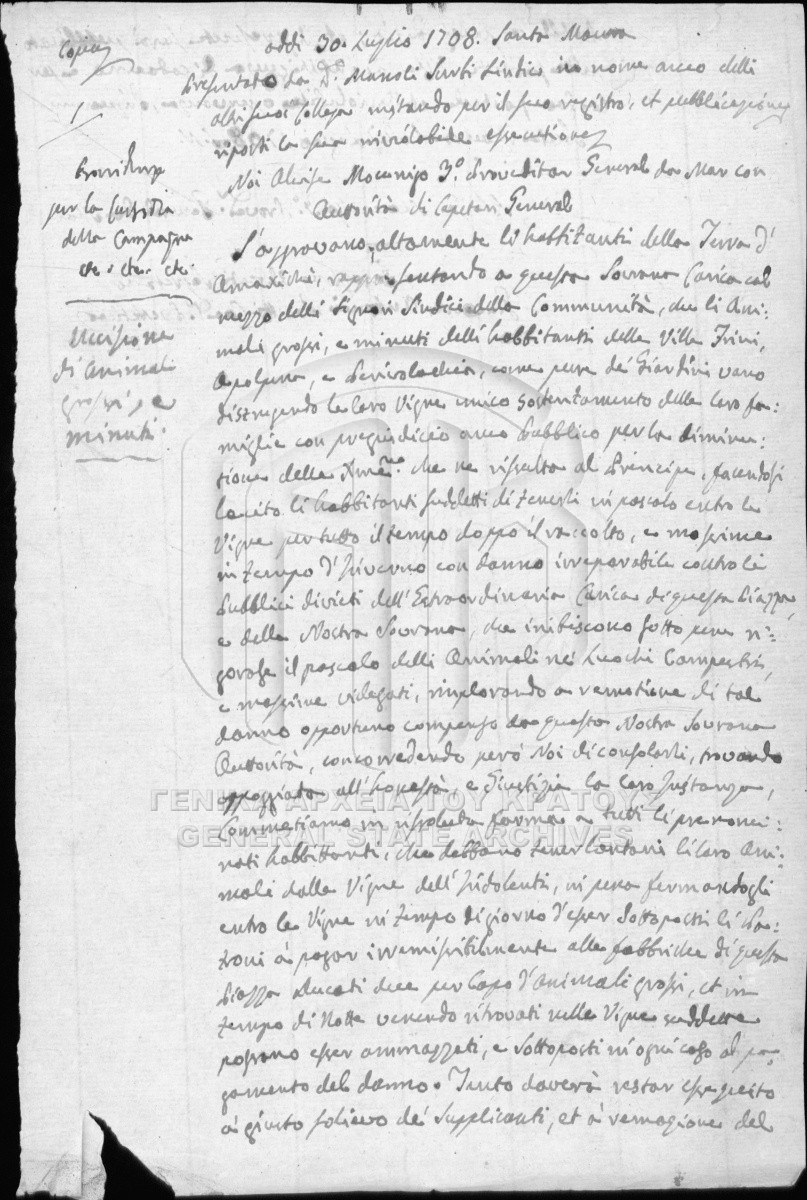 Copia
1
Providenze
per la custodia
della Campagna
etc: etc: etc:
Uccisione
di Animali
grossi, e
minuti.
addi 30. Luglio 1708. Santa Maura
Presentato da D. Manoli Surti Sindico in nome anco delli
altri suoi Colleghi instando per il suo registro, et pubblicazione
riposti la sua inviolabile essecutione
Noi Alvise Mocenigo 3.º Proveditor General da Mar con
Auttorità di Capitan General
S'aggravano altamente li habbitanti della Terra d'
Amaxichi, rappresentando a questa Sovrana Carica col
mezzo delli Signori Sindici della Communità, che li Ani-
mali grossi, e minuti delli habbitanti delle Ville Frini,
Apolpena, e Perivolachia, come pure de' Giardini vano
distrugendo le loro Vigne unico sostentamento delle loro fa:
miglie con pregiudicio anco Pubblico per la diminu:
tione delle che ne rissulta al Prencipe, facendosi
lecito li habbitanti suddetti di tenerli in pascolo entro le
Vigne per tutto il tempo doppo il raccolto, e massime
in tempo d'Inverno con danno irreparabile contro li
Pubblici divieti dell'Estraordinaria Carica di questa Piazza,
e della Nostra Sovrana, che inibiscono sotto pene ri:
gorose il pascolo delli Animali nei Luochi Campestri,
e massime videgati, implorando a remotione di tal
danno opportuno compenso da questa Nostra Sovrana
Auttorità, concorredendo però Noi di consolarli, trovando
appoggiata all'honestà, e Giustizia la loro Instanza,
Commetiamo in rissoluta forma a tutti li prenomi-
nati habbittanti, che debbano tener lontani li loro Ani-
mali dalle Vigne dell'Indolenti, in pena fermandogli
entro le Vigne in tempo di giorno d'esser sottoposti li Pa:
troni à pagar irremissibilmente alle fabbriche di questa
Piazza Ducati due per Capo d'Animali grossi, et in
tempo di Notte venendo ritrovati nelle Vigne suddette
possano esser ammazzati, e sottoposti in ogni caso al pa-
gamento del danno. Tanto doverà restar essequito
à giusto solievo de' Supplicanti, et à remozione del
ΓΕΝΙΚΑ ΑΡΧΕΙΑ ΤΟΥ ΚΡΑΤΟΥΣ
GENERAL STATE ARCHIVES